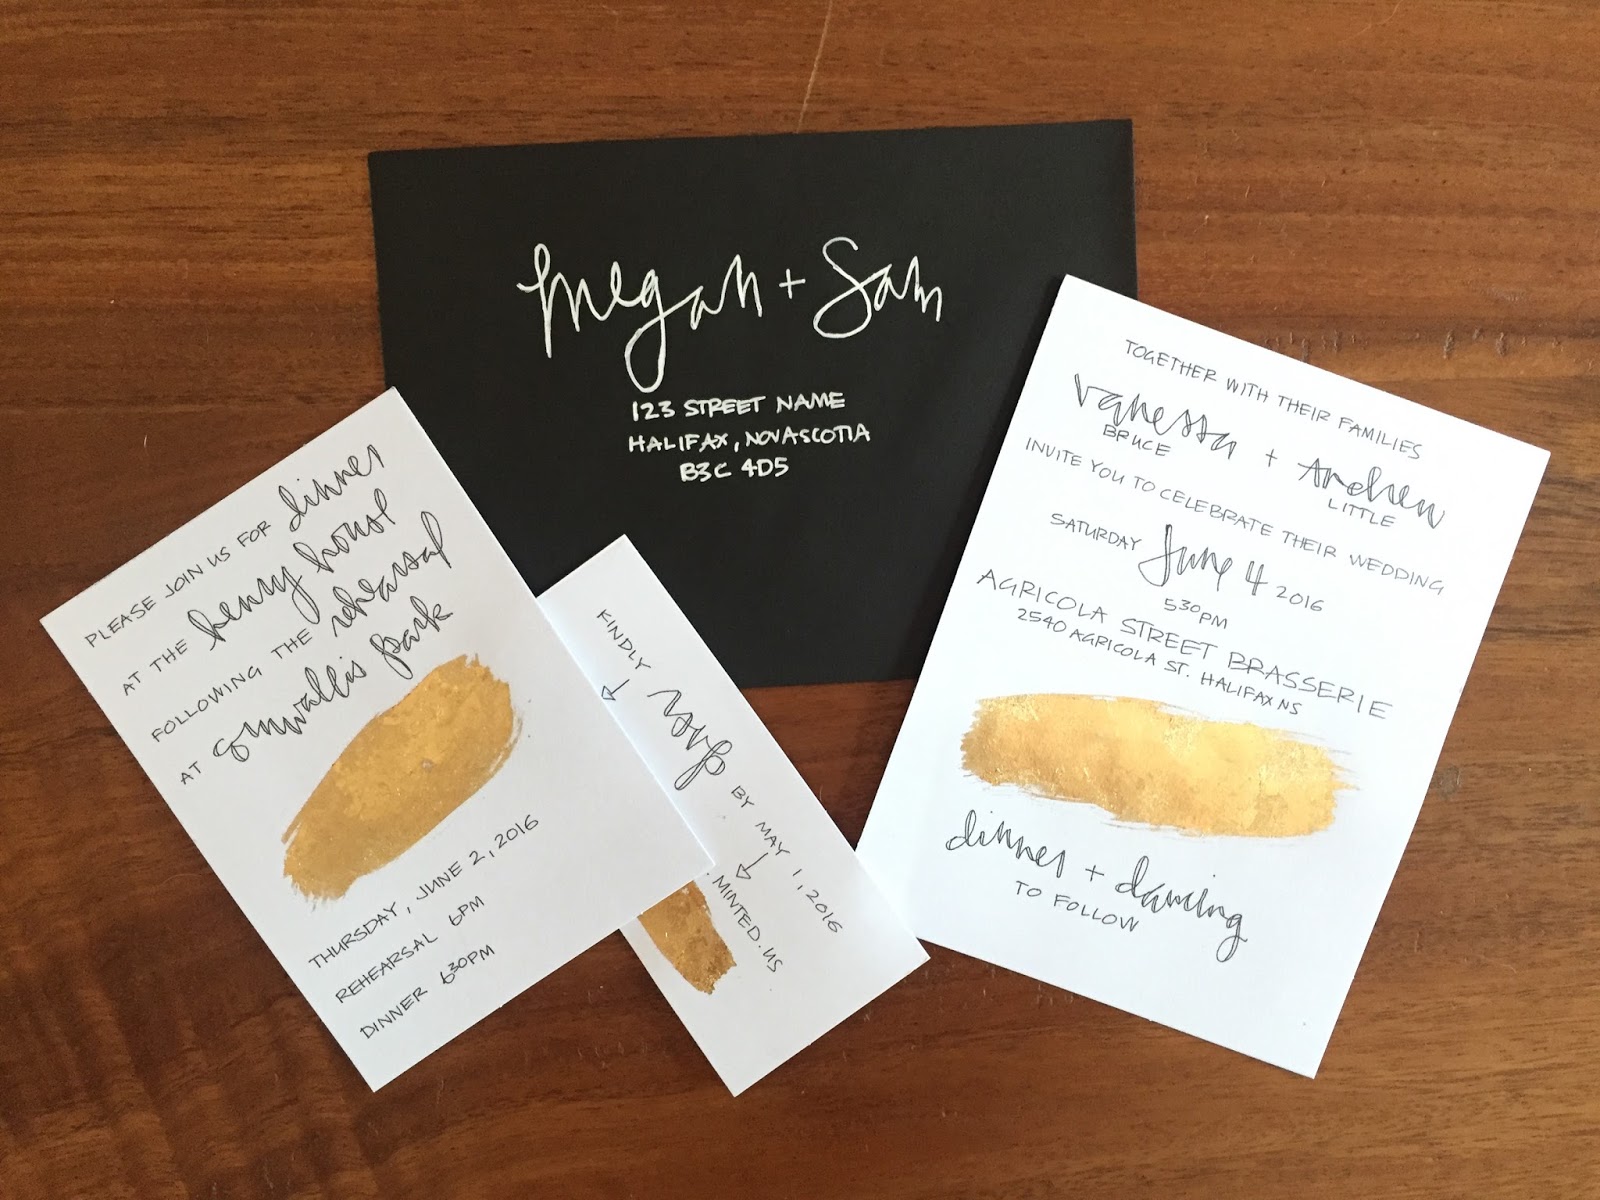 megan + Sam
123 STREET NAME
HALIFAX, NOVA SCOTIA
B3C 4D5
PLEASE JOIN US FOR dinner
AT THE henry house
FOLLOWING THE rehearsal
AT cornwallis park
THURSDAY, JUNE 2, 2016
REHEARSAL 6PM
DINNER 630PM
KINDLY rsvp BY MAY 1, 2016
MINTED.US
TOGETHER WITH THEIR FAMILIES
vanessa + andrew
BRUCE LITTLE
INVITE YOU TO CELEBRATE THEIR WEDDING
SATURDAY June 4 2016
530PM
AGRICOLA STREET BRASSERIE
2540 AGRICOLA ST. HALIFAX NS
dinner + dancing
TO FOLLOW